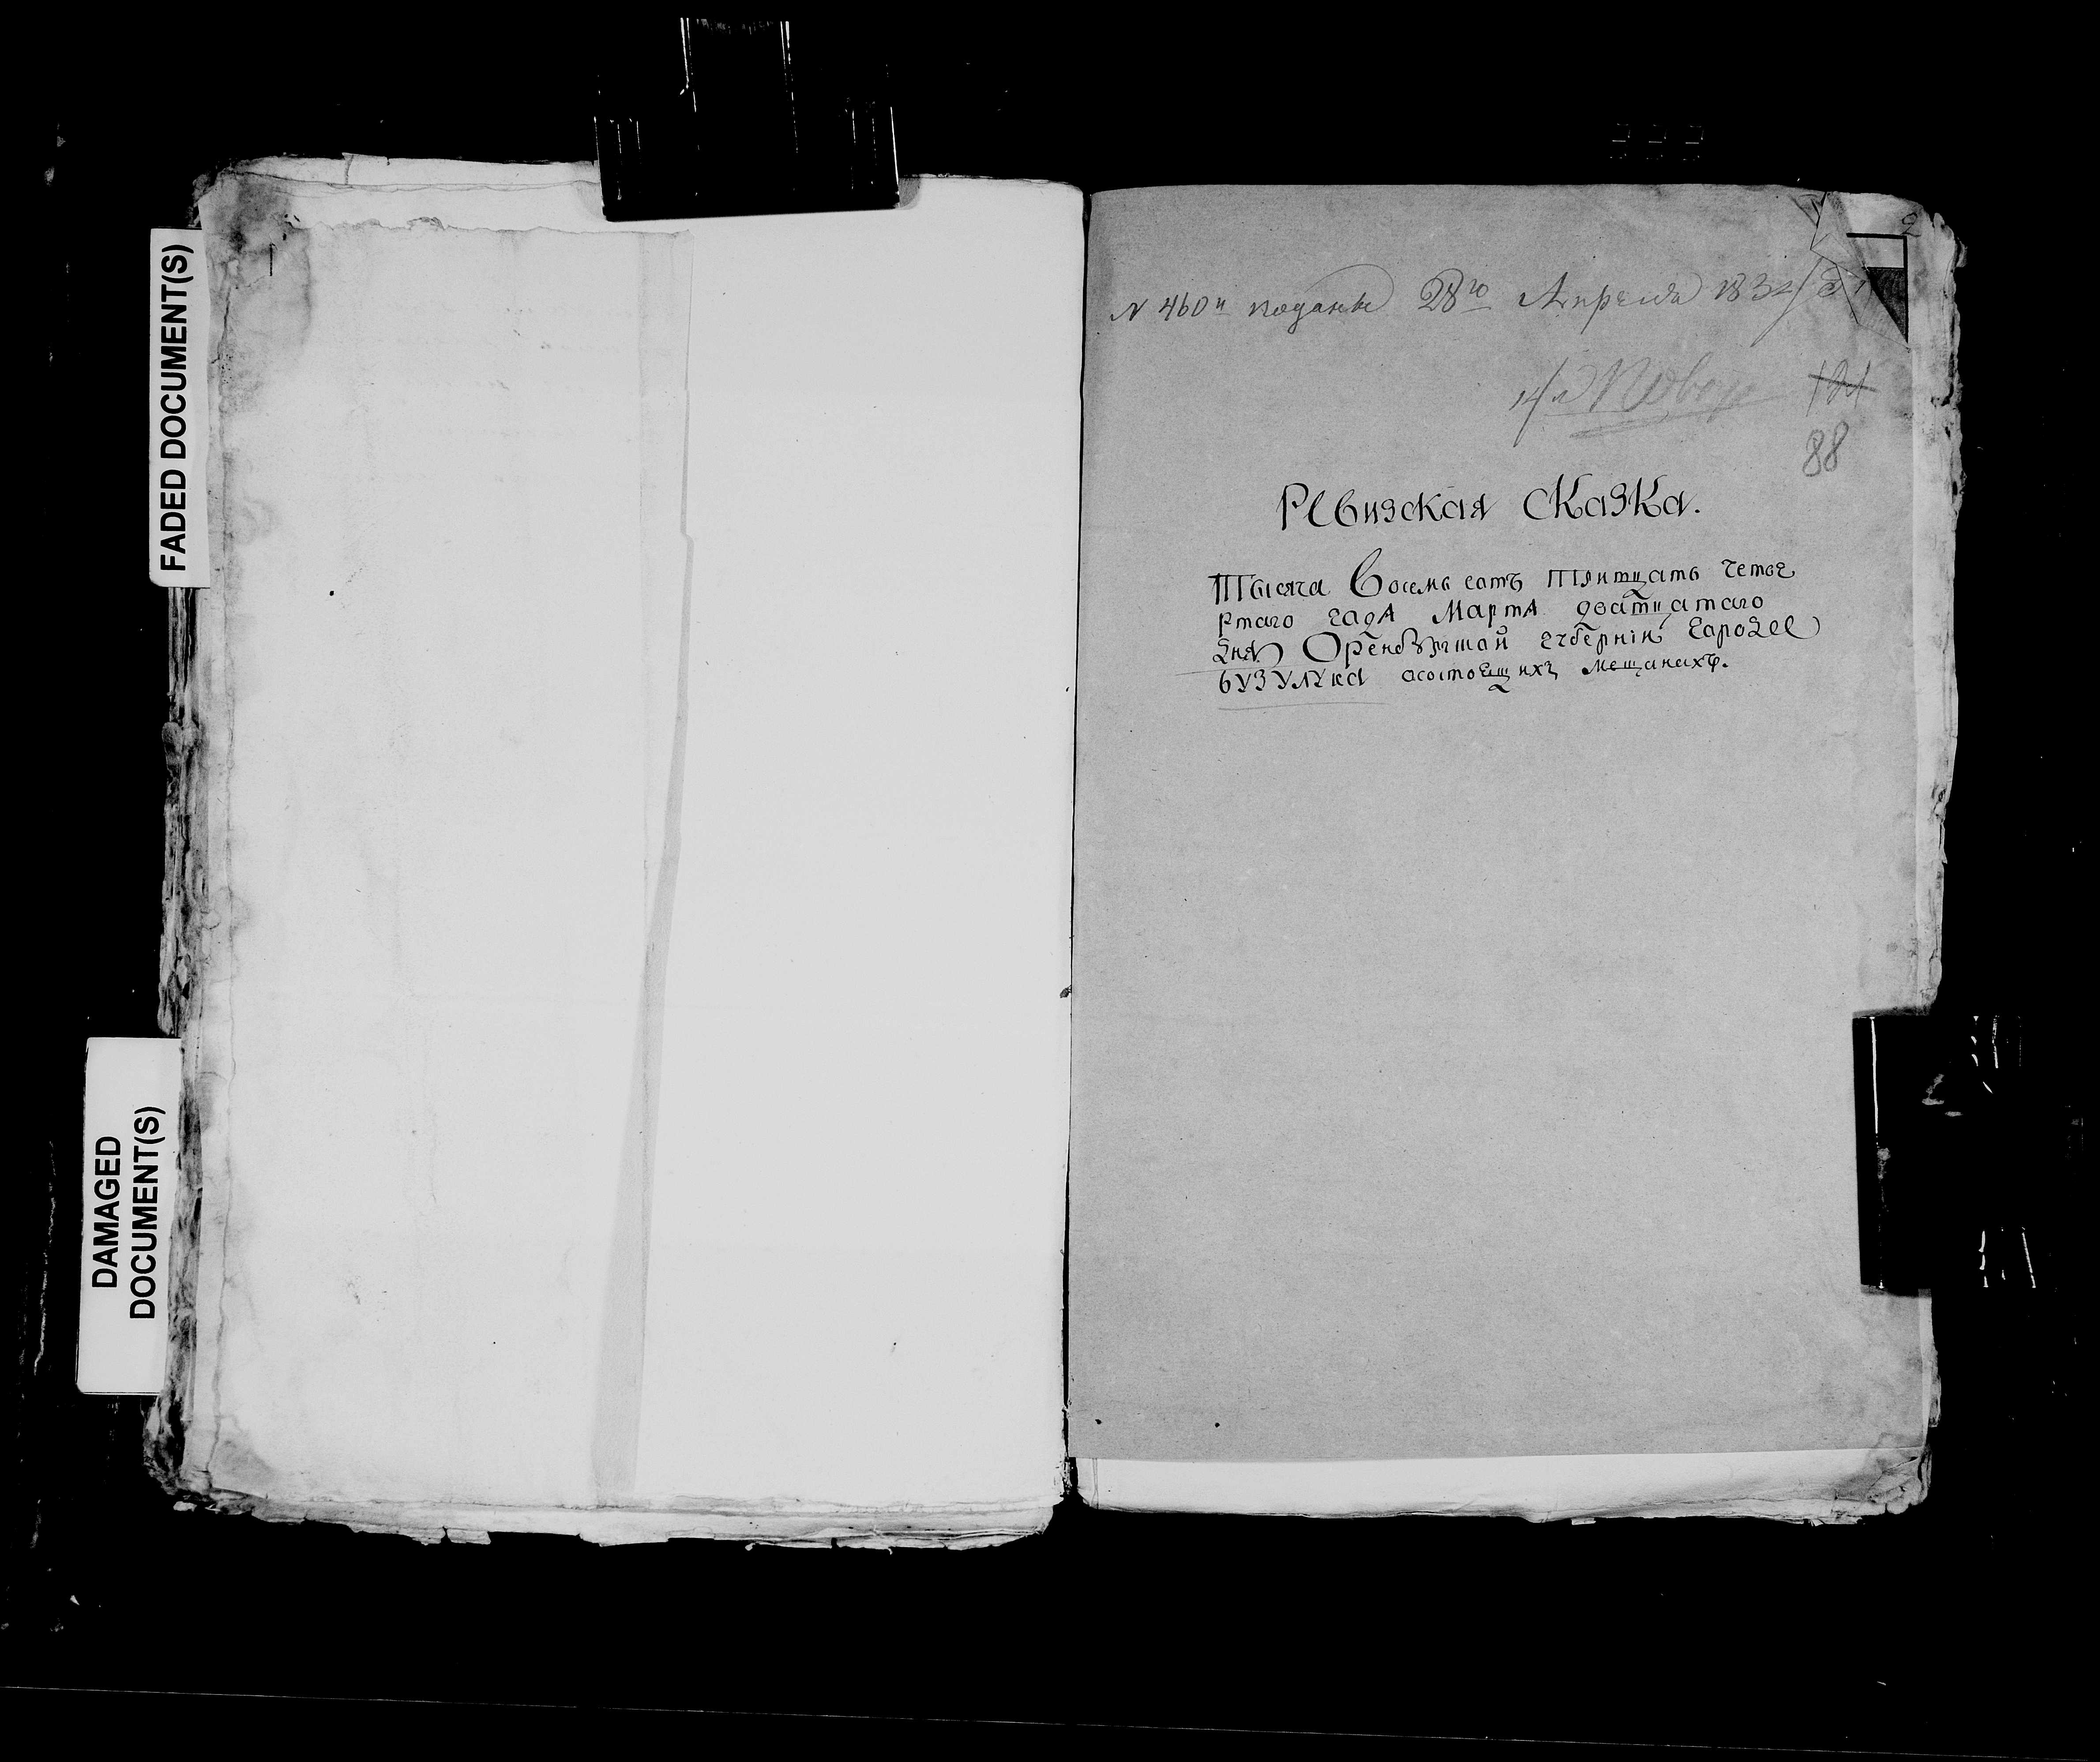 FADED DOCUMENT(S)
DAMAGED
DOCUMENT(S)
2
N 460й поданы 28го Апреля 1834
121
88
Ревизская сказка.
Тысяча Восемь сотъ Тритцать четве
ртаго года Марта дватцатаго
дня Оренбургшай губерніи города
бузулука асостоещихъ мещанехъ.